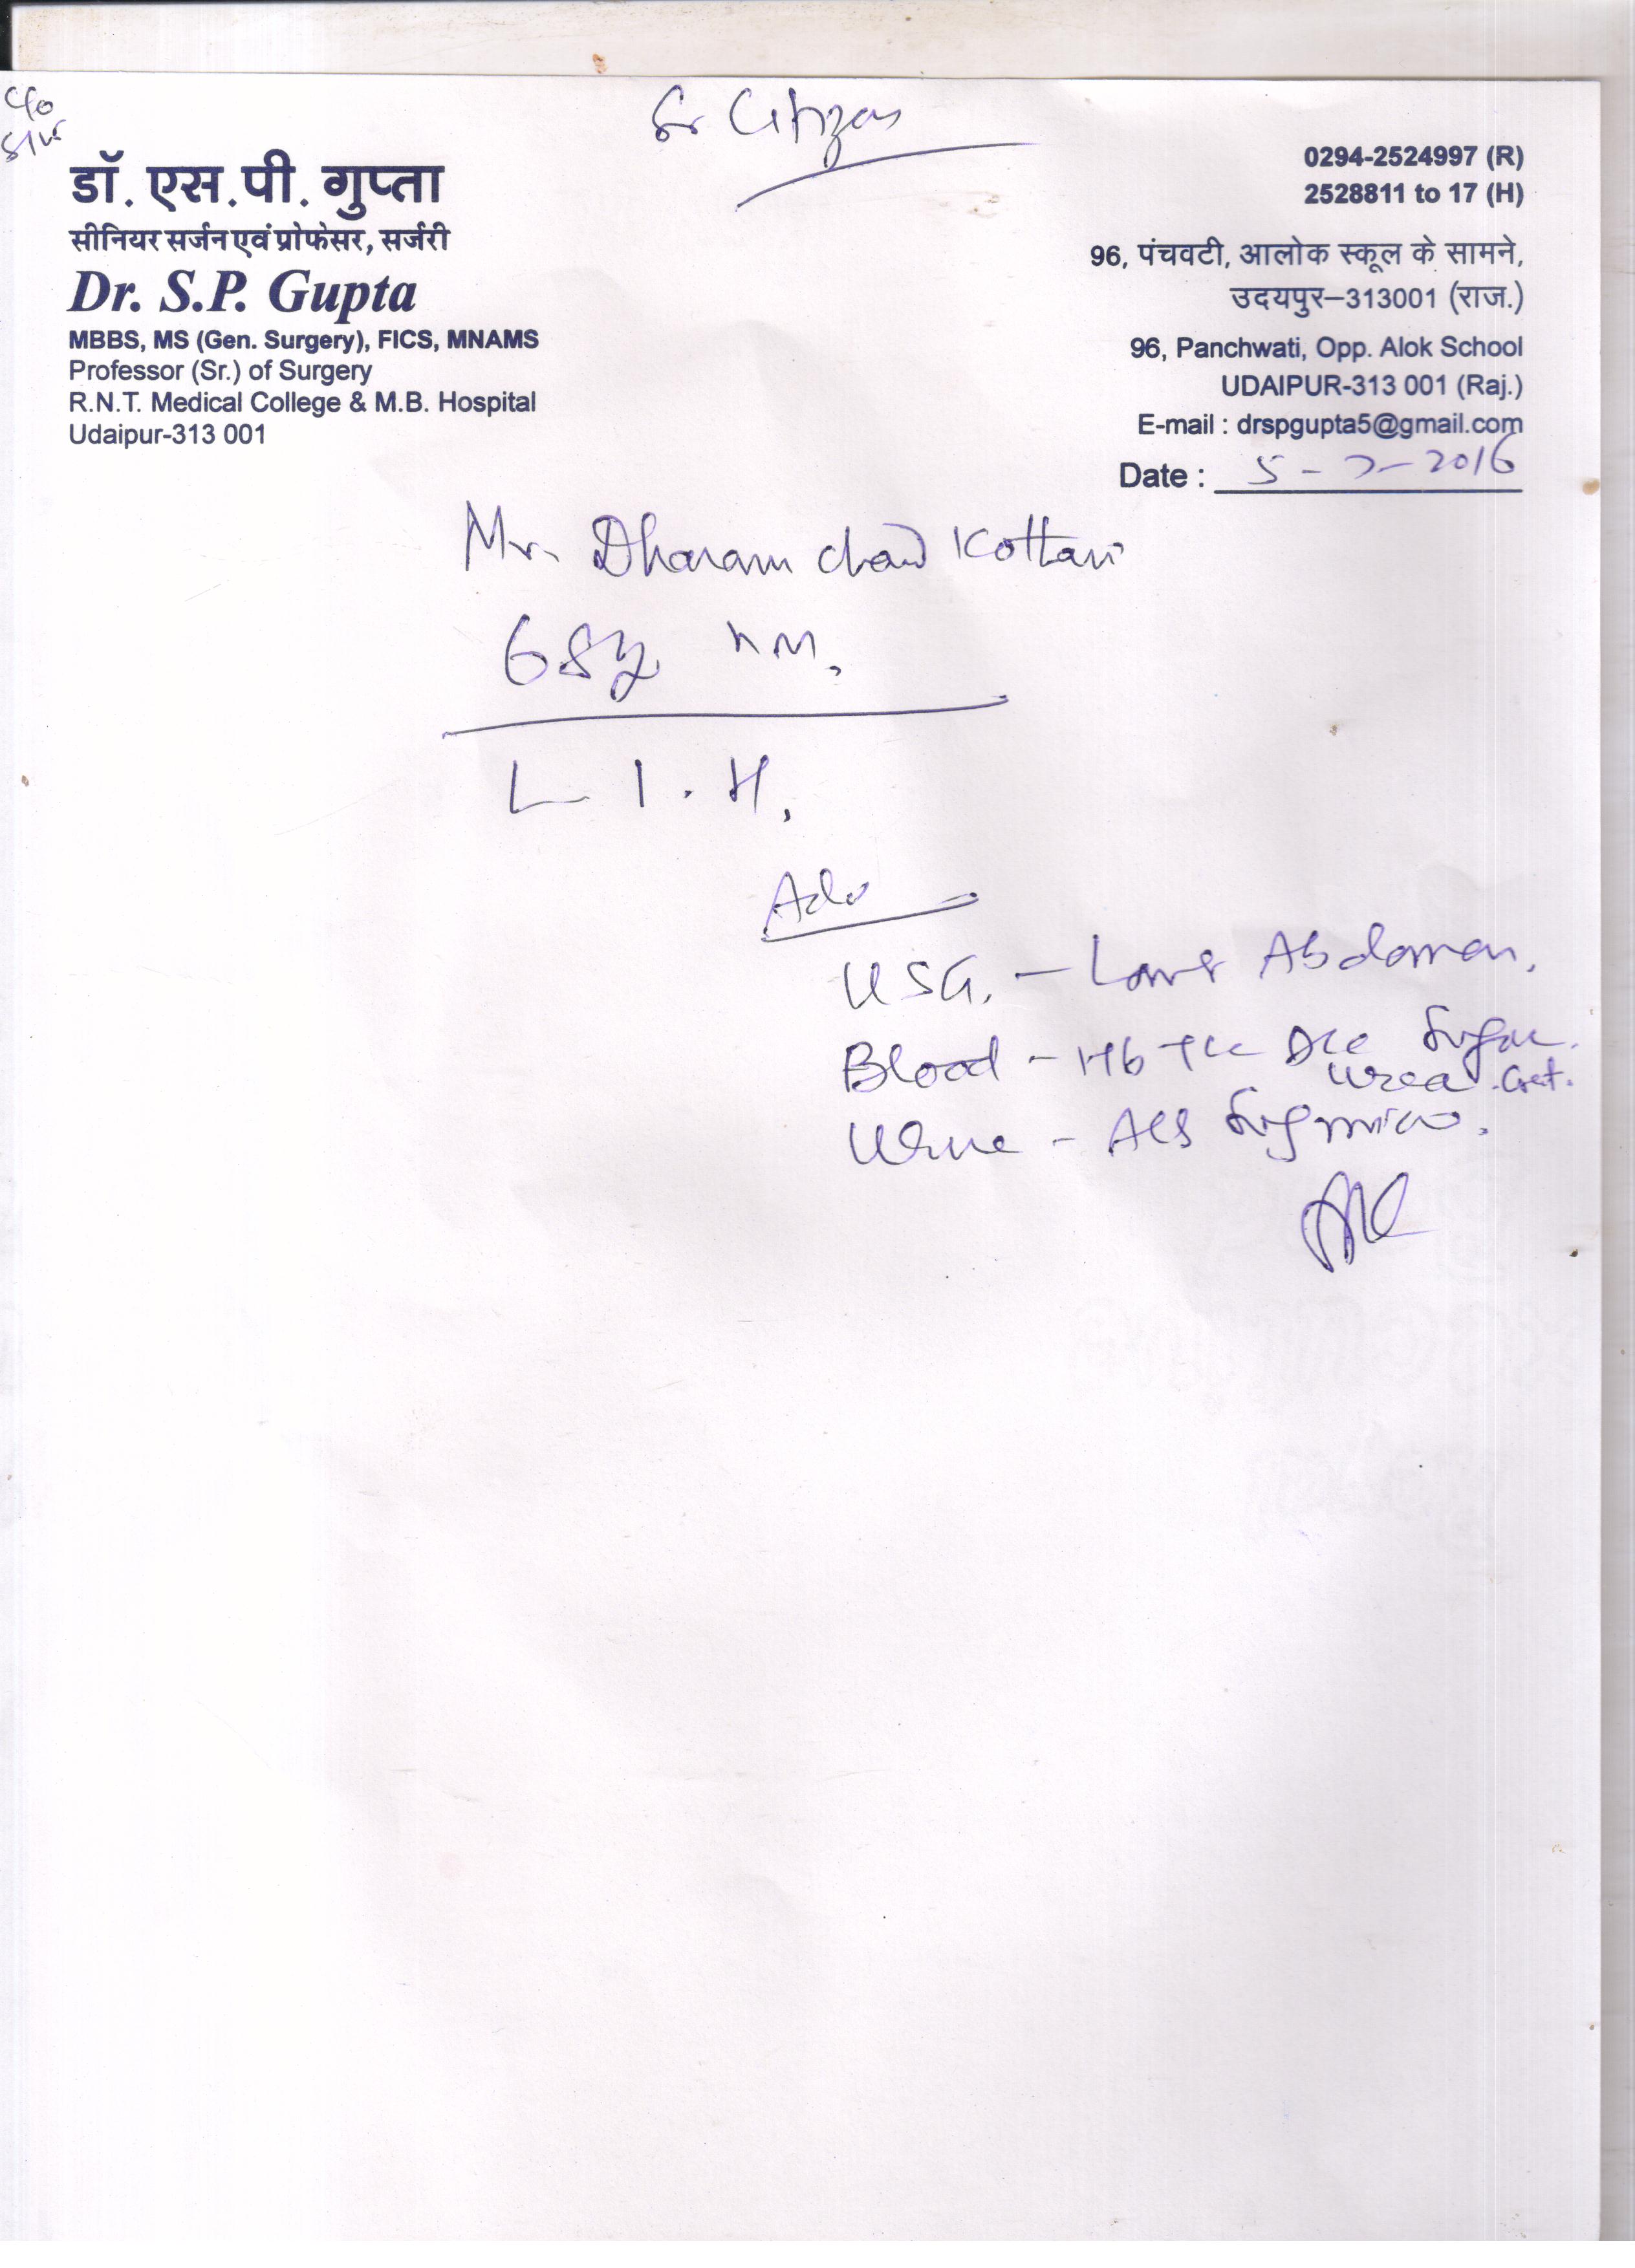 Sr Citizen
डॉ. एस.पी. गुप्ता
सीनियर सर्जन एवं प्रोफेसर, सर्जरी
Dr. S.P. Gupta
MBBS, MS (Gen. Surgery), FICS, MNAMS
Professor (Sr.) of Surgery
R.N.T. Medical College & M.B. Hospital
Udaipur-313 001
0294-2524997 (R)
2528811 to 17 (H)
96, पंचवटी, आलोक स्कूल के सामने,
उदयपुर–313001 (राज.)
96, Panchwati, Opp. Alok School
UDAIPUR-313 001 (Raj.)
E-mail : drspgupta5@gmail.com
Date : 5-7-2016
Mr. Dharam chand Kothari
68y
L I. H.
Adv
USG. - Lower Abdomen.
Blood - Hb TLC DLC Sugar.
Urea
Urine - Alb Sug micro.